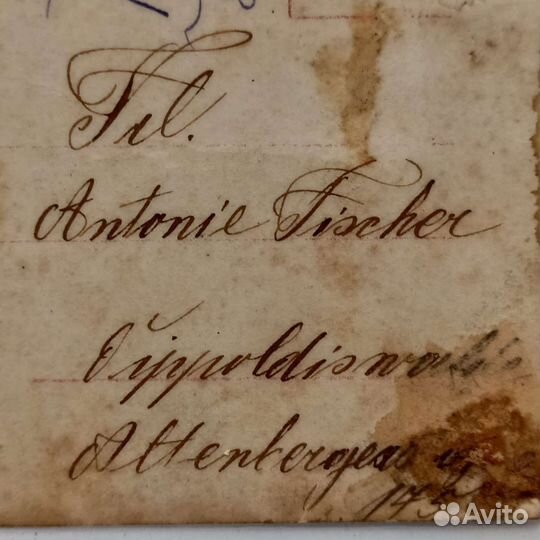 Frl.
Antonie Fischer
Dippoldiswalde
Altenberger
175
Avito